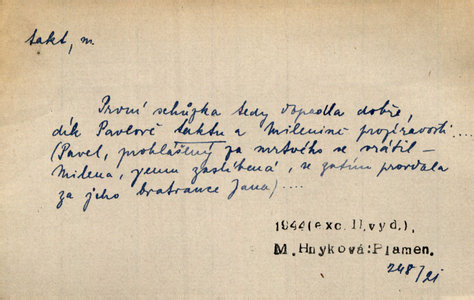 takt, m.
První schůzka tedy dopadla dobře,
dík Pavlově taktu a Milenině prozíravosti....
(Pavel, prohlášený za mrtvého se vrátil –
Milena, jemu zaslíbená, se zatím provdala
za jeho bratrance Jana)....
1944(exc.II.vyd.).
M. Hnyková:Plamen.
248/21